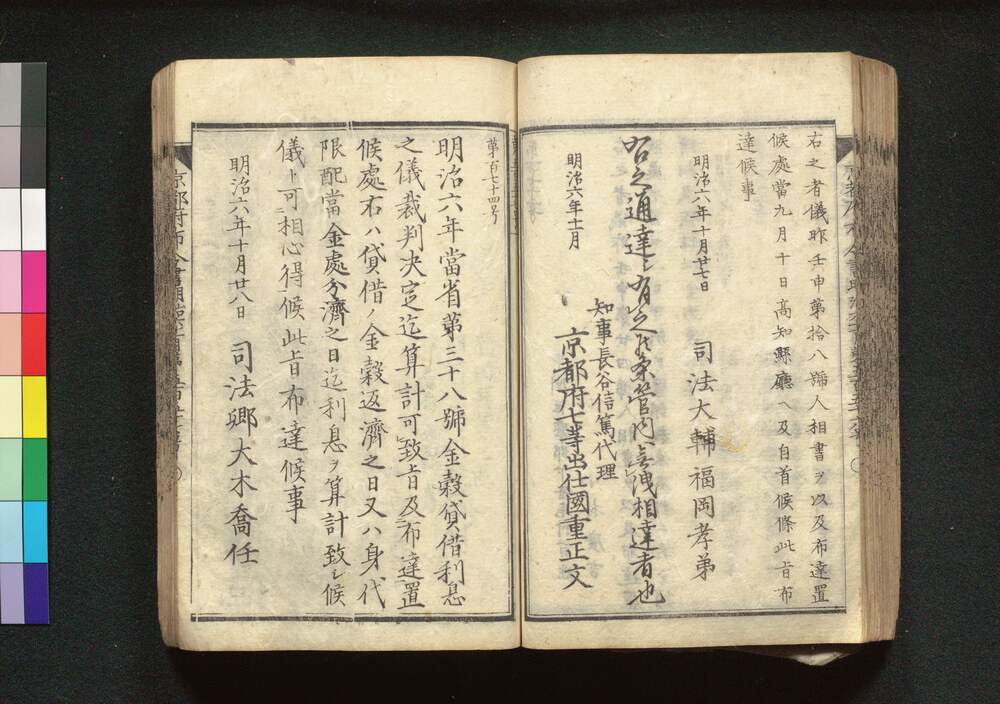 右之者儀昨壬申第拾八號人相書ヲ以及布達置
候處當九月十日高知縣廳ヘ及自首候條此旨布
達候事
明治六年十月廿七日
司法大輔福岡孝弟
右之通達シ有之候条管内無洩相達者也
明治六年十一月
知事長谷信篤代理
京都府七等出仕國重正文
第百七十四号
明治六年當省第三十八號金穀貸借利息
之儀裁判决定迄算計可致旨及布達置
候處右ハ貸借ノ金穀返濟之日又ハ身代
限配當金處分濟之日迄利息ヲ算計致シ候
儀ト可相心得候此旨布達候事
明治六年十月廿八日
司法卿大木喬任